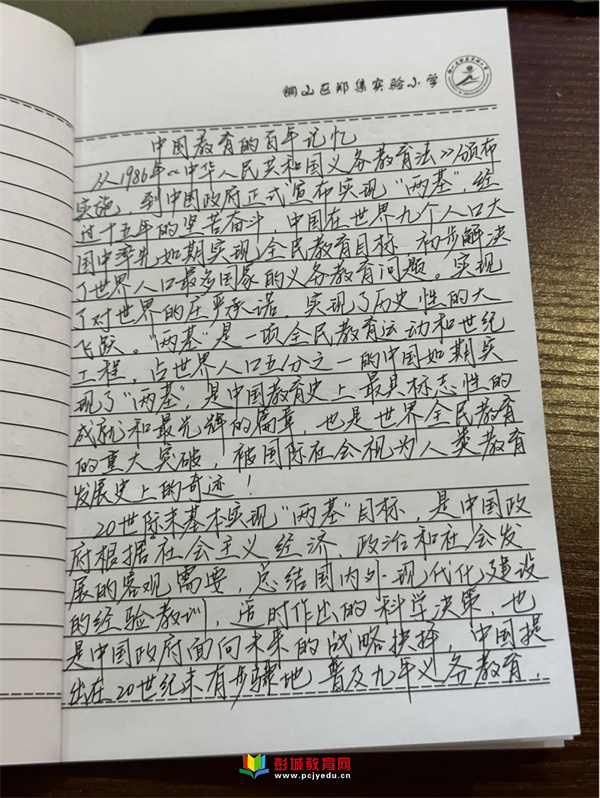 铜山区郑集实验小学
中国教育的百年记忆
从1986年《中华人民共和国义务教育法》颁布
实施，到中国政府正式宣布实现“两基”，经
过十五年的坚苦奋斗，中国在世界九个人口大
国中率先如期实现全民教育目标，初步解决
了世界人口最多国家的义务教育问题。实现
了对世界的庄严承诺，实现了历史性的大
飞跃。“两基”是一项全民教育运动和世纪
工程，占世界人口五分之一的中国如期实
现了“两基”，是中国教育史上最具标志性的
成就和最光辉的篇章，也是世界全民教育
的重大突破，被国际社会视为人类教育
发展史上的奇迹！
20世际末基本实现“两基”目标，是中国政
府根据社会主义经济、政治和社会发
展的客观需要，总结国内外现代化建设
的经验教训，适时作出的科学决策，也
是中国政府面向未来的战略抉择，中国提
出在20世纪末有步骤地普及九年义务教育，
彭城教育网
www.pcjyedu.cn